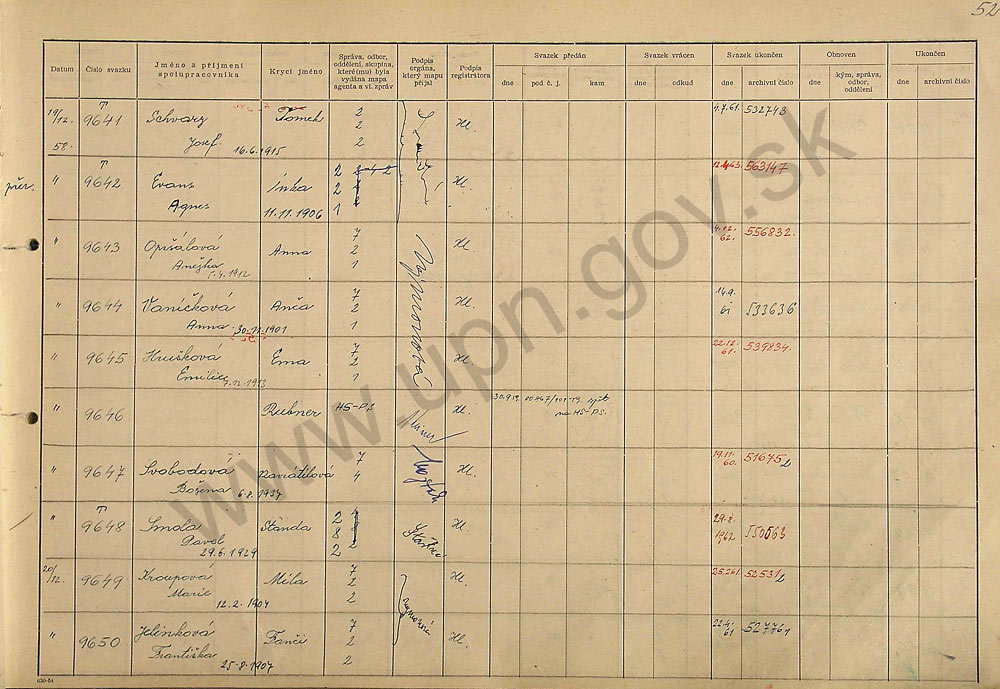 52
Datum
Číslo svazku
Jméno a příjmení
spolupracovníka
Krycí jméno
Správa, odbor,
oddělení, skupina,
které(mu) byla
vydána mapa
agenta a vl. zpráv
Podpis
orgána,
který mapu
přijal
Podpis
registrátora
Svazek předán
dne
pod č. j.
kam
Svazek vrácen
dne
odkud
Svazek ukončen
dne
archivní číslo
Obnoven
dne
kým, správa,
odbor,
oddělení
Ukončen
dne
archivní číslo
19/12. 58. 9641 Schwarz Tomek 2 2 2 Hl. 1.7.61. 532743
Josef 16.6.1915
" 9642 Evans Inka 2 2 1 Hl. 563147
Agnes 11.11.1906
" 9643 Opršálová Anna 7 2 1 Hl. 4.12. 62. 556832.
Anežka 5.4.1912
" 9644 Vaníčková Anča 7 2 1 Hl. 14.9. 61 533636
Anna 30.11.1901
" 9645 Hrušková Ema 7 2 1 Hl. 22.12. 61. 539834.
Emilie 7.12.1913
" 9646 Rubner HS-PS Hl. 30.9.59 zpět
na HS-PS.
" 9647 Svobodová Navrátilová 7 4 Hl. 19.11. 60. 516752
Božena 6.8.1937
" 9648 Smola Standa 2 8 2 Hl. 29.8. 1962 550563
Pavel 29.6.1929
20/12. 9649 Kroupová Míla 7 2 2 Hl. 25.2.61. 525312
Marie 12.2.1904
" 9650 Jelínková Fanči 7 2 2 Hl. 22.4. 61 527761
Františka 25.8.1907
630-54
www.upn.gov.sk